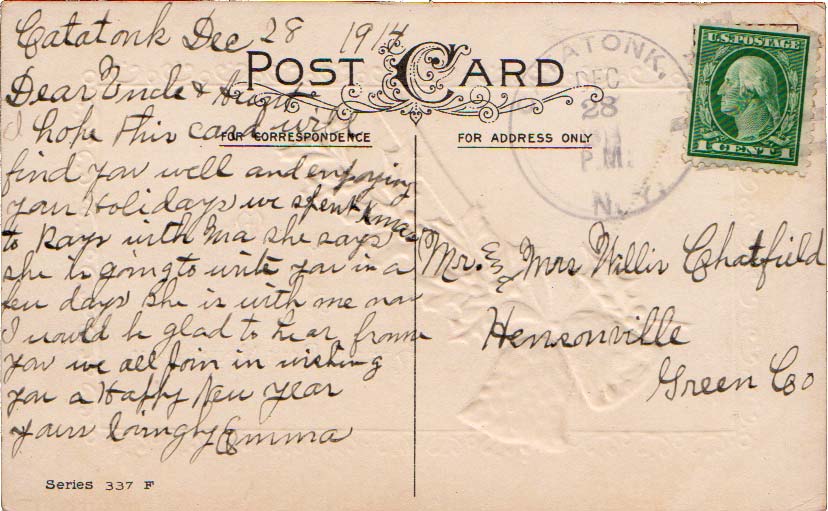 Catatonk Dec 28 1914
POST CARD
Dear Uncle & Aunt
I hope this card will
FOR CORRESPONDENCE
find you well and enjoying
your Holidays we spent Xmas
to Rays with Ma she says
she is going to write you in a
few days she is with me now
I would be glad to hear from
you we all Join in wishing
you a Happy New Year
yours lovingly Emma
Series 337 F
FOR ADDRESS ONLY
Mr. and Mrs Willis Chatfield
Hensonville
Green Co
ATONK,
DEC
28
P.M.
N.Y.
U.S. POSTAGE
1 CENT 1